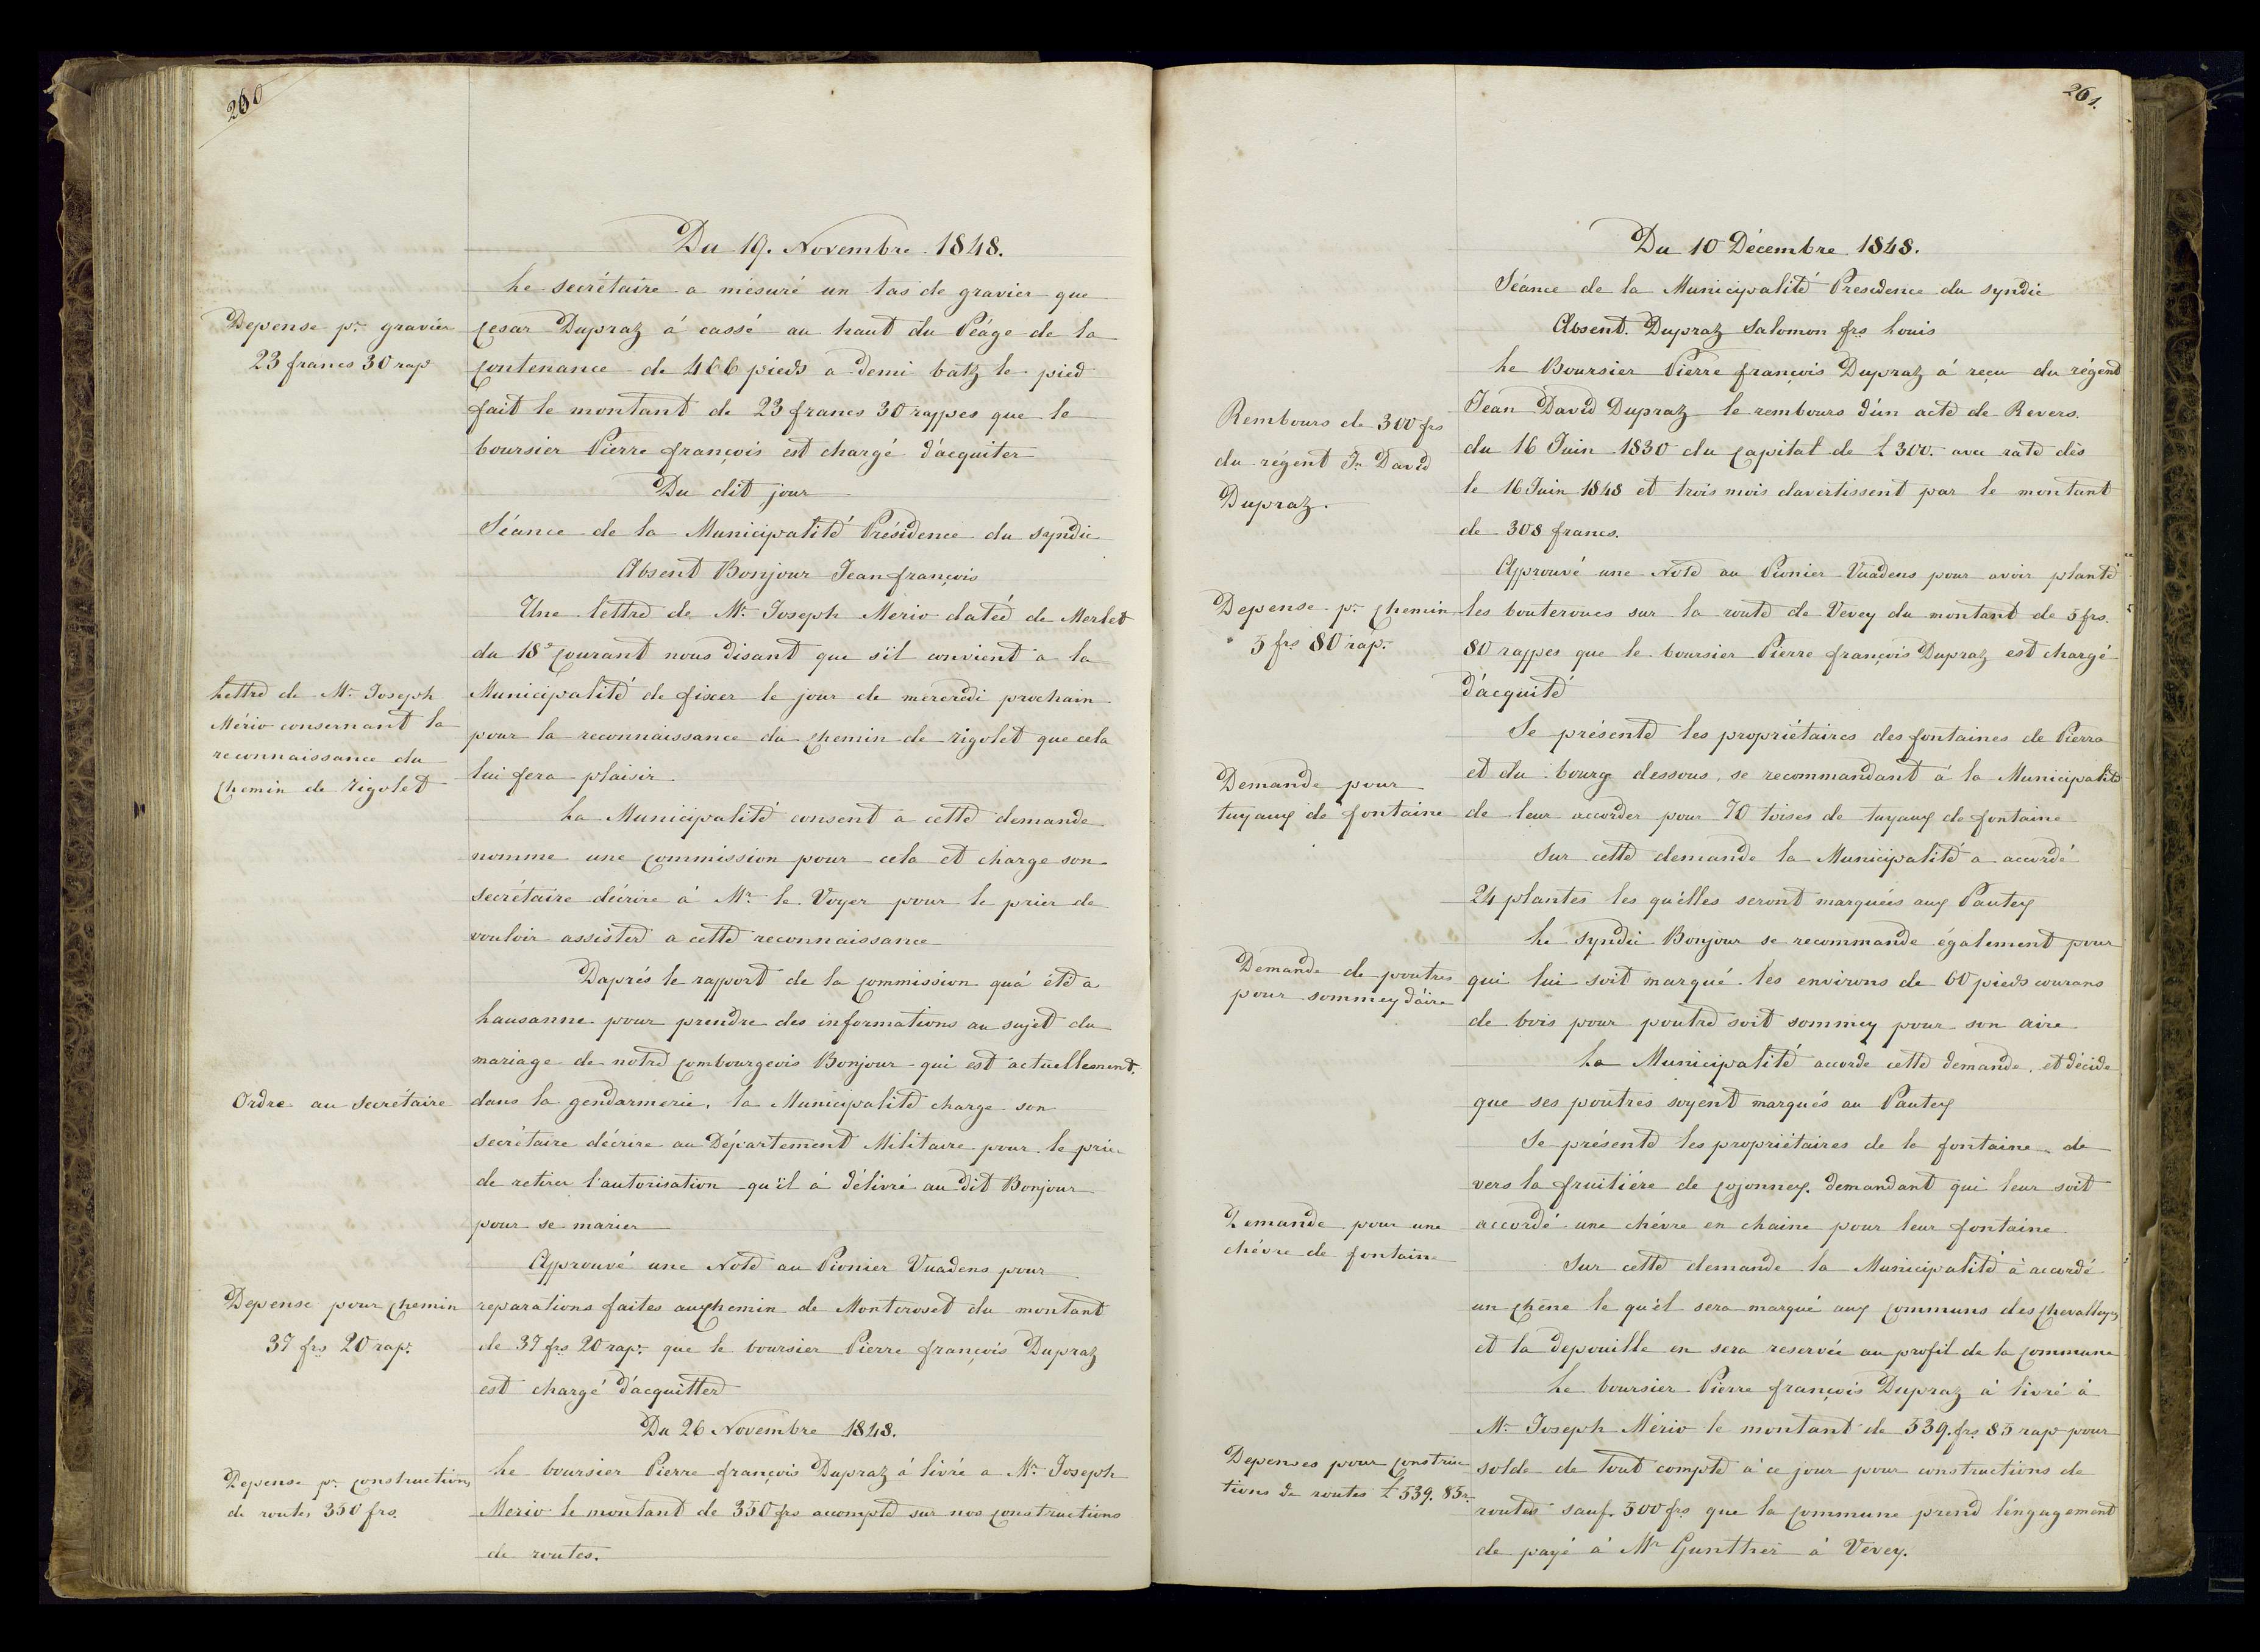 260
Du 19. Novembre 1848.
Le secrétaire a mésuré un tas de gravier que
Depense pr. gravier
23 francs 30 rap
Cesar Dupraz á cassé au haut du Péage de la
contenance de 466 pieds a demi batz le pied
fait le montant de 23 francs 30 rappes que le
boursier Pierre françois est chargé d'acquiter
Du dit jour
Séance de la Municipalité Présidence du syndic
Absent Bonjour Jean françois
Une lettre de Mr. Joseph Merio datée de Merlet
du 18e courant nous disant que s'il convient a la
Lettre de Mr. Joseph
Mério consernant la
reconnaissance du
Chemin de rigolet
Municipalité de fixer le jour de mercredi prochain
pour la reconnaissance du Chemin de rigolet que cela
lui fera plaisir
La Municipalité consent a cette demande
nomme une commission pour cela et charge son
secrétaire décrire á Mr. le Voyer pour le prier de
vouloir assister a cette reconnaissance
Daprés le rapport de la commission qu'á été a
Lausanne pour prendre des informations au sujet du
mariage de notre combourgeois Bonjour qui est actuellement
Ordre au Secrétaire
dans la gendarmerie, la Municipalité charge son
secrétaire décrire au Département Militaire pour le prier
de retirer l'autorisation qu'il á délivré au dit Bonjour
pour se marier
Approuvé une Note au Pionier Vuadens pour
Depense pour Chemin
37 frs 20 rap.
reparations faites au Chemin de Montcroset du montant
de 37 frs 20 rap. que le boursier Pierre françois Dupraz
est chargé d'acquitter
Du 26 Novembre 1848.
Depense pr. constructions
de routes 350 frs.
Le boursier Pierre françois Dupraz á livré a Mr. Joseph
Merio le montant de 350 frs accompte sur nos constructions
de routes.
261.
Du 10 Décembre 1848.
Séance de la Municipalité Presidence du syndic
Absent. Dupraz Salomon frs Louis
Le Boursier Pierre françois Dupraz á reçu du régent
Rembours de 300 frs
du régent Jn David
Dupraz.
Jean David Dupraz le rembours d'un acte de Revers.
du 16 Juin 1830 du capital de £ 300.- avec rate dès
le 16 Juin 1848 et trois mois davertissent par le montant
de 308 francs.
Approuvé une Note au Pionier Vuadens pour avoir planté
Depense pr. Chemin
5 frs 80 rap.
les bouteroues sur la route de Vevey du montant de 5 frs.
80 rappes que le boursier Pierre françois Dupraz est chargé
d'acquité
Se présente les propriétaires des fontaines de Pierra
Demande pour
tuyaux de fontaine
et du bourg dessous, se recommandant à la Municipalité
de leur accorder pour 70 toises de tuyaux de fontaine
Sur cette demande la Municipalité a accordé
24 plantes les qu'elles seront marquées aux Pautex
Le syndic Bonjour se recommande également pour
Demande de poutres
pour sommey d'aire
qui lui soit marqué les environs de 60 pieds courans
de bois pour poutre soit sommey pour son aire
La Municipalité accorde cette demande, et décide
que ses poutres soyent marqués au Pautex
Se présente les propriétaires de la fontaine de
vers la fruitiére de Cojonnex. demandant qui leur soit
Demande pour une
chévre de fontaine
accordé une chévre en chaine pour leur fontaine
Sur cette demande la Municipalité à accordé
un chêne le qu'el sera marqué aux communs des Chevalleys
et la depouille en sera reservée au profit de la commune
Le boursier Pierre françois Dupraz á livré á
Mr. Joseph Mério le montant de 539. frs 85 rap pour
Depenses pour construc
tions de routes £ 539. 85 r.
solde de tout compte à ce jour pour constructions de
routes sauf. 500 frs que la Commune prend l'engagement
de payé á Mr Gunther á Vevey.